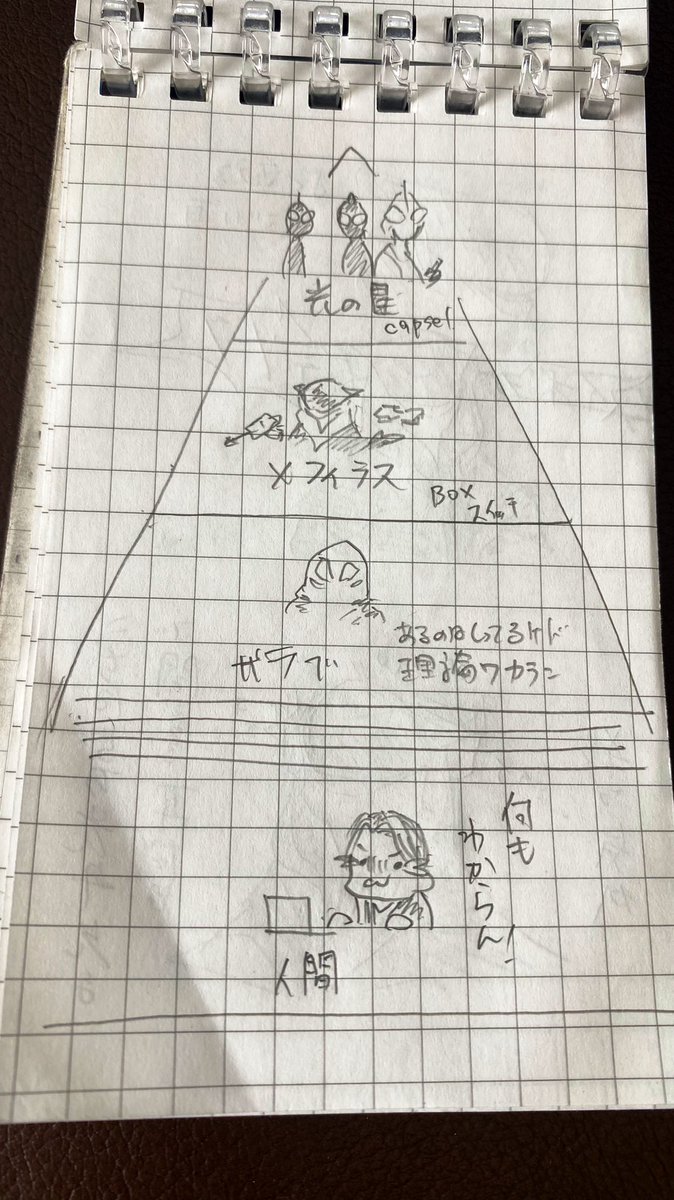 光の星
capsel
メフィラス
BOX
スイッチ
ザラブ
あるのはしってるけド
理論ワカラン
何も
わからん!
人間